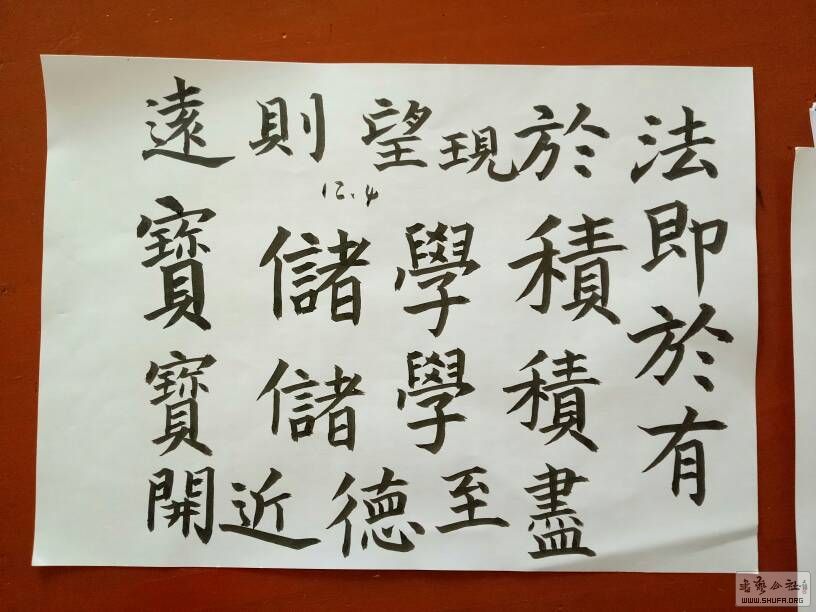 遠則望現於法
12.4
寶儲學積即
寶儲學積於
開近德至盡有
書藝公社
WWW.SHUFA.ORG